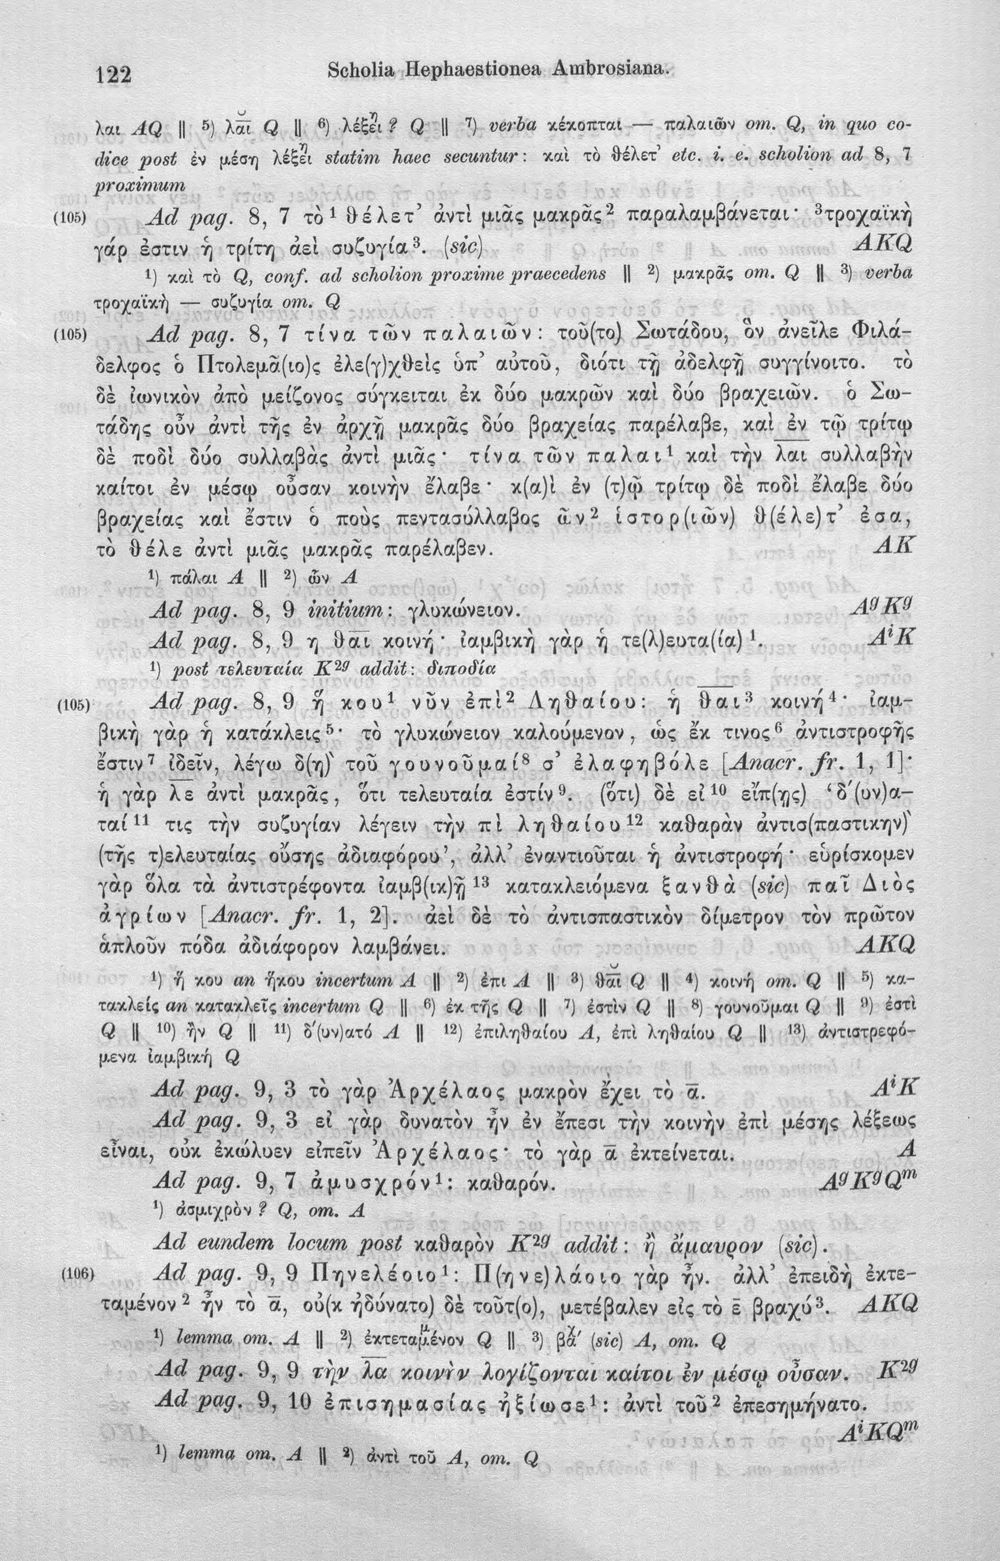 122
Scholia Hephaestionea Ambrosiana.
λαι AQ || ⁵) λαῖ Q || ⁶) λέξει ? Q || ⁷) verba κέκοπται — παλαιῶν om. Q, in quo co-
dice post ἐν μέση λέξει statim haec secuntur: καὶ τὸ θέλετ’ etc. i. e. scholion ad 8, 7
proximum
(105) Ad pag. 8, 7 τὸ¹ θέλετ’ ἀντὶ μιᾶς μακρᾶς² παραλαμβάνεται· ³τροχαϊκὴ
γάρ ἐστιν ἡ τρίτη ἀεὶ συζυγία³. (sic) AKQ
¹) καὶ τὸ Q, conf. ad scholion proxime praecedens || ²) μακρᾶς om. Q || ³) verba
τροχαϊκὴ — συζυγία om. Q
(105) Ad pag. 8, 7 τίνα τῶν παλαιῶν: τοῦ(το) Σωτάδου, ὃν ἀνεῖλε Φιλά-
δελφος ὁ Πτολεμᾶ(ιο)ς ἐλε(γ)χθεὶς ὑπ’ αὐτοῦ, διότι τῇ ἀδελφῇ συγγίνοιτο. τὸ
δὲ ἰωνικὸν ἀπὸ μείζονος σύγκειται ἐκ δύο μακρῶν καὶ δύο βραχειῶν. ὁ Σω-
τάδης οὖν ἀντὶ τῆς ἐν ἀρχῇ μακρᾶς δύο βραχείας παρέλαβε, καὶ ἐν τῷ τρίτῳ
δὲ ποδὶ δύο συλλαβὰς ἀντὶ μιᾶς· τίνα τῶν παλαι¹ καὶ τὴν λαι συλλαβὴν
καίτοι ἐν μέσῳ οὖσαν κοινὴν ἔλαβε· κ(α)ὶ ἐν (τ)ῷ τρίτῳ δὲ ποδὶ ἔλαβε δύο
βραχείας καὶ ἔστιν ὁ ποὺς πεντασύλλαβος ὧν² ἱστορ(ιῶν) θ(έλε)τ’ ἐσα,
τὸ θέλε ἀντὶ μιᾶς μακρᾶς παρέλαβεν. AK
¹) πάλαι A || ²) ὦν A
Ad pag. 8, 9 initium: γλυκώνειον. AᵍKᵍ
Ad pag. 8, 9 η θαι κοινή· ἰαμβικὴ γὰρ ἡ τε(λ)ευτα(ία)¹. AⁱK
¹) post τελευταία K²ᵍ addit: διποδία
(105) Ad pag. 8, 9 ἥ κου¹ νῦν ἐπὶ² Ληθαίου: ἡ θαι³ κοινή⁴· ἰαμ-
βικὴ γὰρ ἡ κατάκλεις⁵· τὸ γλυκώνειον καλούμενον, ὡς ἔκ τινος⁶ ἀντιστροφῆς
ἔστιν⁷ ἰδεῖν, λέγω δ(ὴ) τοῦ γουνοῦμαί⁸ σ’ ἐλαφηβόλε [Anacr. fr. 1, 1]·
ἡ γὰρ λε ἀντὶ μακρᾶς, ὅτι τελευταία ἐστίν⁹. (ὅτι) δὲ εἰ¹⁰ εἴπ(ῃς) ‘δ’(υν)α-
ταί¹¹ τις τὴν συζυγίαν λέγειν τὴν πὶ ληθαίου¹² καθαρὰν ἀντισ(παστικην)’
(τῆς τ)ελευταίας οὔσης ἀδιαφόρου’, ἀλλ’ ἐναντιοῦται ἡ ἀντιστροφή· εὑρίσκομεν
γὰρ ὅλα τὰ ἀντιστρέφοντα ἰαμβ(ικ)ῇ¹³ κατακλειόμενα ξανθὰ (sic) παῖ Διὸς
ἀγρίων [Anacr. fr. 1, 2]. ἀεὶ δὲ τὸ ἀντισπαστικὸν δίμετρον τὸν πρῶτον
ἁπλοῦν πόδα ἀδιάφορον λαμβάνει. AKQ
¹) ἤ κου an ἤκου incertum A || ²) ἐπι A || ³) θαῖ Q || ⁴) κοινή om. Q || ⁵) κα-
τακλείς an κατακλεῖς incertum Q || ⁶) ἐκ τῆς Q || ⁷) ἐστὶν Q || ⁸) γουνοῦμαι Q || ⁹) ἐστὶ
Q || ¹⁰) ἢν Q || ¹¹) δ’(υν)ατό A || ¹²) ἐπιληθαίου A, ἐπὶ ληθαίου Q || ¹³) ἀντιστρεφό-
μενα ἰαμβική Q
Ad pag. 9, 3 τὸ γὰρ Ἀρχέλαος μακρὸν ἔχει τὸ ᾱ. AⁱK
Ad pag. 9, 3 εἰ γὰρ δυνατὸν ἦν ἐν ἔπεσι τὴν κοινὴν ἐπὶ μέσης λέξεως
εἶναι, οὐκ ἐκώλυεν εἰπεῖν Ἀρχέλαος· τὸ γὰρ ᾱ ἐκτείνεται. A
Ad pag. 9, 7 ἀμυσχρόν¹: καθαρόν. AᵍKᵍQᵐ
¹) ἀσμιχρὸν ? Q, om. A
Ad eundem locum post καθαρὸν K²ᵍ addit: ἢ ἄμαυρον (sic).
(106) Ad pag. 9, 9 Πηνελέοιο¹: Π(ηνε)λάοιο γὰρ ἦν. ἀλλ’ ἐπειδὴ ἐκτε-
ταμένον² ἦν τὸ ᾱ, οὐ(κ ἠδύνατο) δὲ τοῦτ(ο), μετέβαλεν εἰς τὸ ε̄ βραχύ³. AKQ
¹) lemma om. A || ²) ἐκτεταμένον Q || ³) βά’ (sic) A, om. Q
Ad pag. 9, 9 τὴν λα κοινὴν λογίζονται καίτοι ἐν μέσῳ οὖσαν. K²ᵍ
Ad pag. 9, 10 ἐπισημασίας ἠξίωσε¹: ἀντὶ τοῦ² ἐπεσημήνατο.
AⁱKQᵐ
¹) lemma om. A || ²) ἀντὶ τοῦ A, om. Q